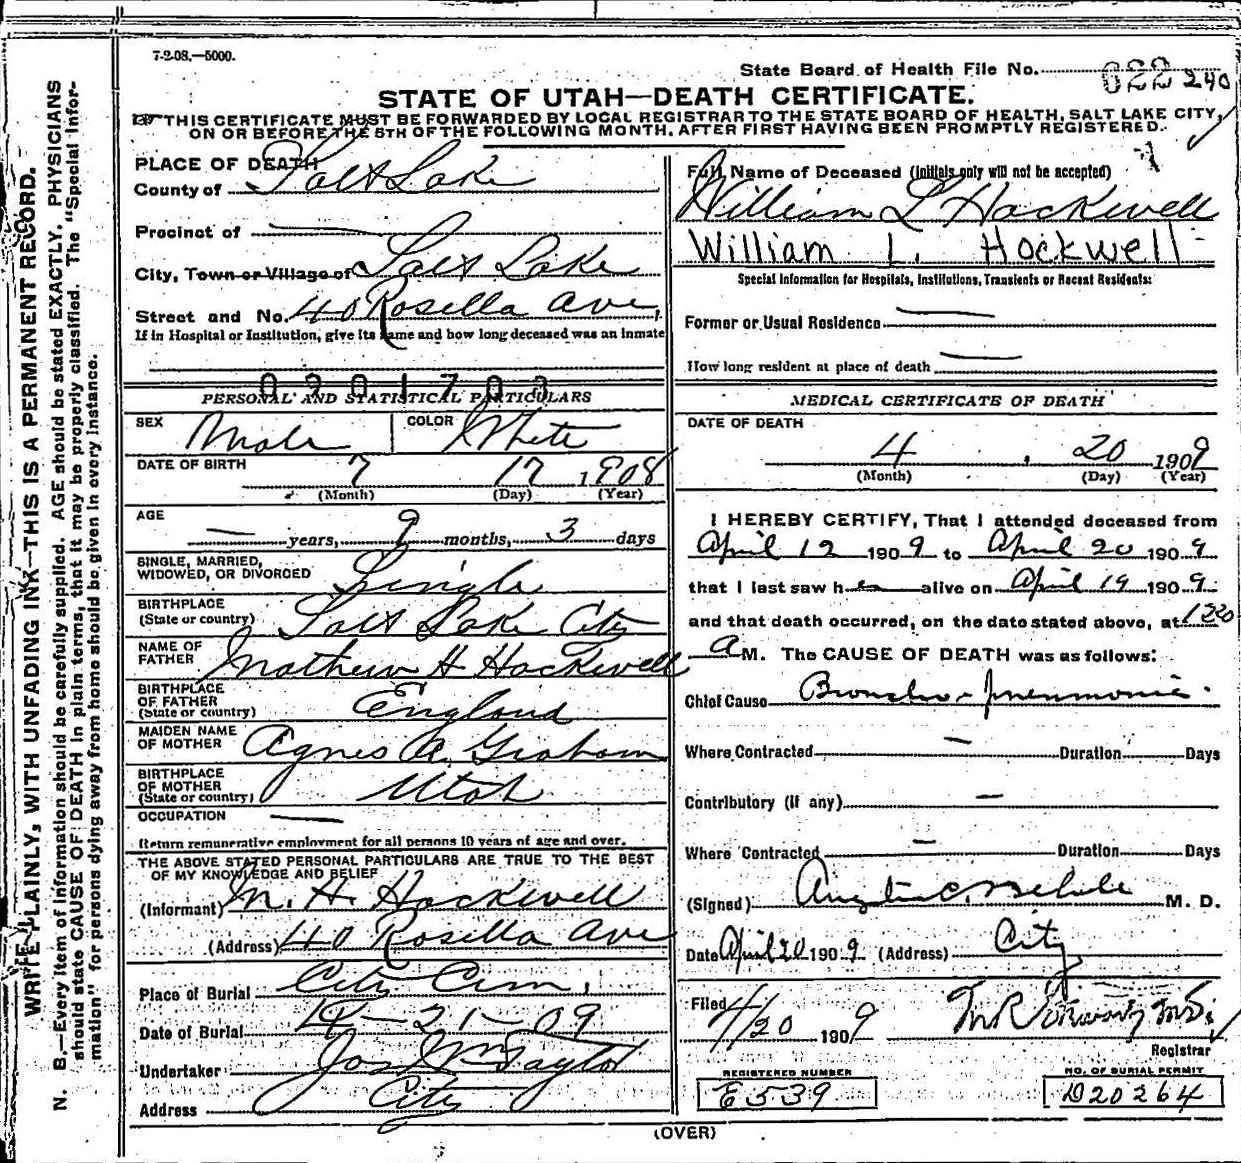 7-2-08.—5000.
State Board of Health File No. 622 240
STATE OF UTAH—DEATH CERTIFICATE.
THIS CERTIFICATE MUST BE FORWARDED BY LOCAL REGISTRAR TO THE STATE BOARD OF HEALTH, SALT LAKE CITY,
ON OR BEFORE THE 5TH OF THE FOLLOWING MONTH, AFTER FIRST HAVING BEEN PROMPTLY REGISTERED.
WRITE PLAINLY, WITH UNFADING INK—THIS IS A PERMANENT RECORD.
N. B.—Every item of information should be carefully supplied. AGE should be stated EXACTLY. PHYSICIANS
should state CAUSE OF DEATH in plain terms, that it may be properly classified. The "Special Infor-
mation" for persons dying away from home should be given in every instance.
PLACE OF DEATH
County of Salt Lake
Precinct of —
City, Town or Village of Salt Lake
Street and No. 40 Rosella Ave.
If in Hospital or Institution, give its name and how long deceased was an inmate
0201703
PERSONAL AND STATISTICAL PARTICULARS
SEX Male COLOR White
DATE OF BIRTH 7 17, 1908
(Month) (Day) (Year)
AGE
— years, 9 months, 3 days
SINGLE, MARRIED,
WIDOWED, OR DIVORCED Single
BIRTHPLACE
(State or country) Salt Lake City
NAME OF
FATHER Mathew H Hockwell
BIRTHPLACE
OF FATHER
(State or country) England
MAIDEN NAME
OF MOTHER Agnes A. Graham
BIRTHPLACE
OF MOTHER
(State or country) Utah
OCCUPATION —
(Return remunerative employment for all persons 10 years of age and over.
THE ABOVE STATED PERSONAL PARTICULARS ARE TRUE TO THE BEST
OF MY KNOWLEDGE AND BELIEF
(Informant) M. H. Hockwell
(Address) 40 Rosella Ave
Place of Burial City Cem.
Date of Burial 4-21-09
Undertaker Jos Wm Taylor
Address City
Full Name of Deceased (Initials only will not be accepted)
William L Hockwell
William L. Hockwell
Special Information for Hospitals, Institutions, Transients or Recent Residents:
Former or Usual Residence —
How long resident at place of death —
MEDICAL CERTIFICATE OF DEATH
DATE OF DEATH
4, 20 1909
(Month) (Day) (Year)
I HEREBY CERTIFY, That I attended deceased from
April 12 1909 to April 20 1909
that I last saw h alive on April 19 1909
and that death occurred, on the date stated above, at 1220
A M. The CAUSE OF DEATH was as follows:
Chief Cause Broncho-pneumonia.
Where Contracted — Duration Days
Contributory (if any) —
Where Contracted — Duration Days
(Signed) M. D.
Date April 20 1909 (Address) City
Filed 4/20 1909 M.D.
Registrar
REGISTERED NUMBER
E539
NO. OF BURIAL PERMIT
D20264
(OVER)